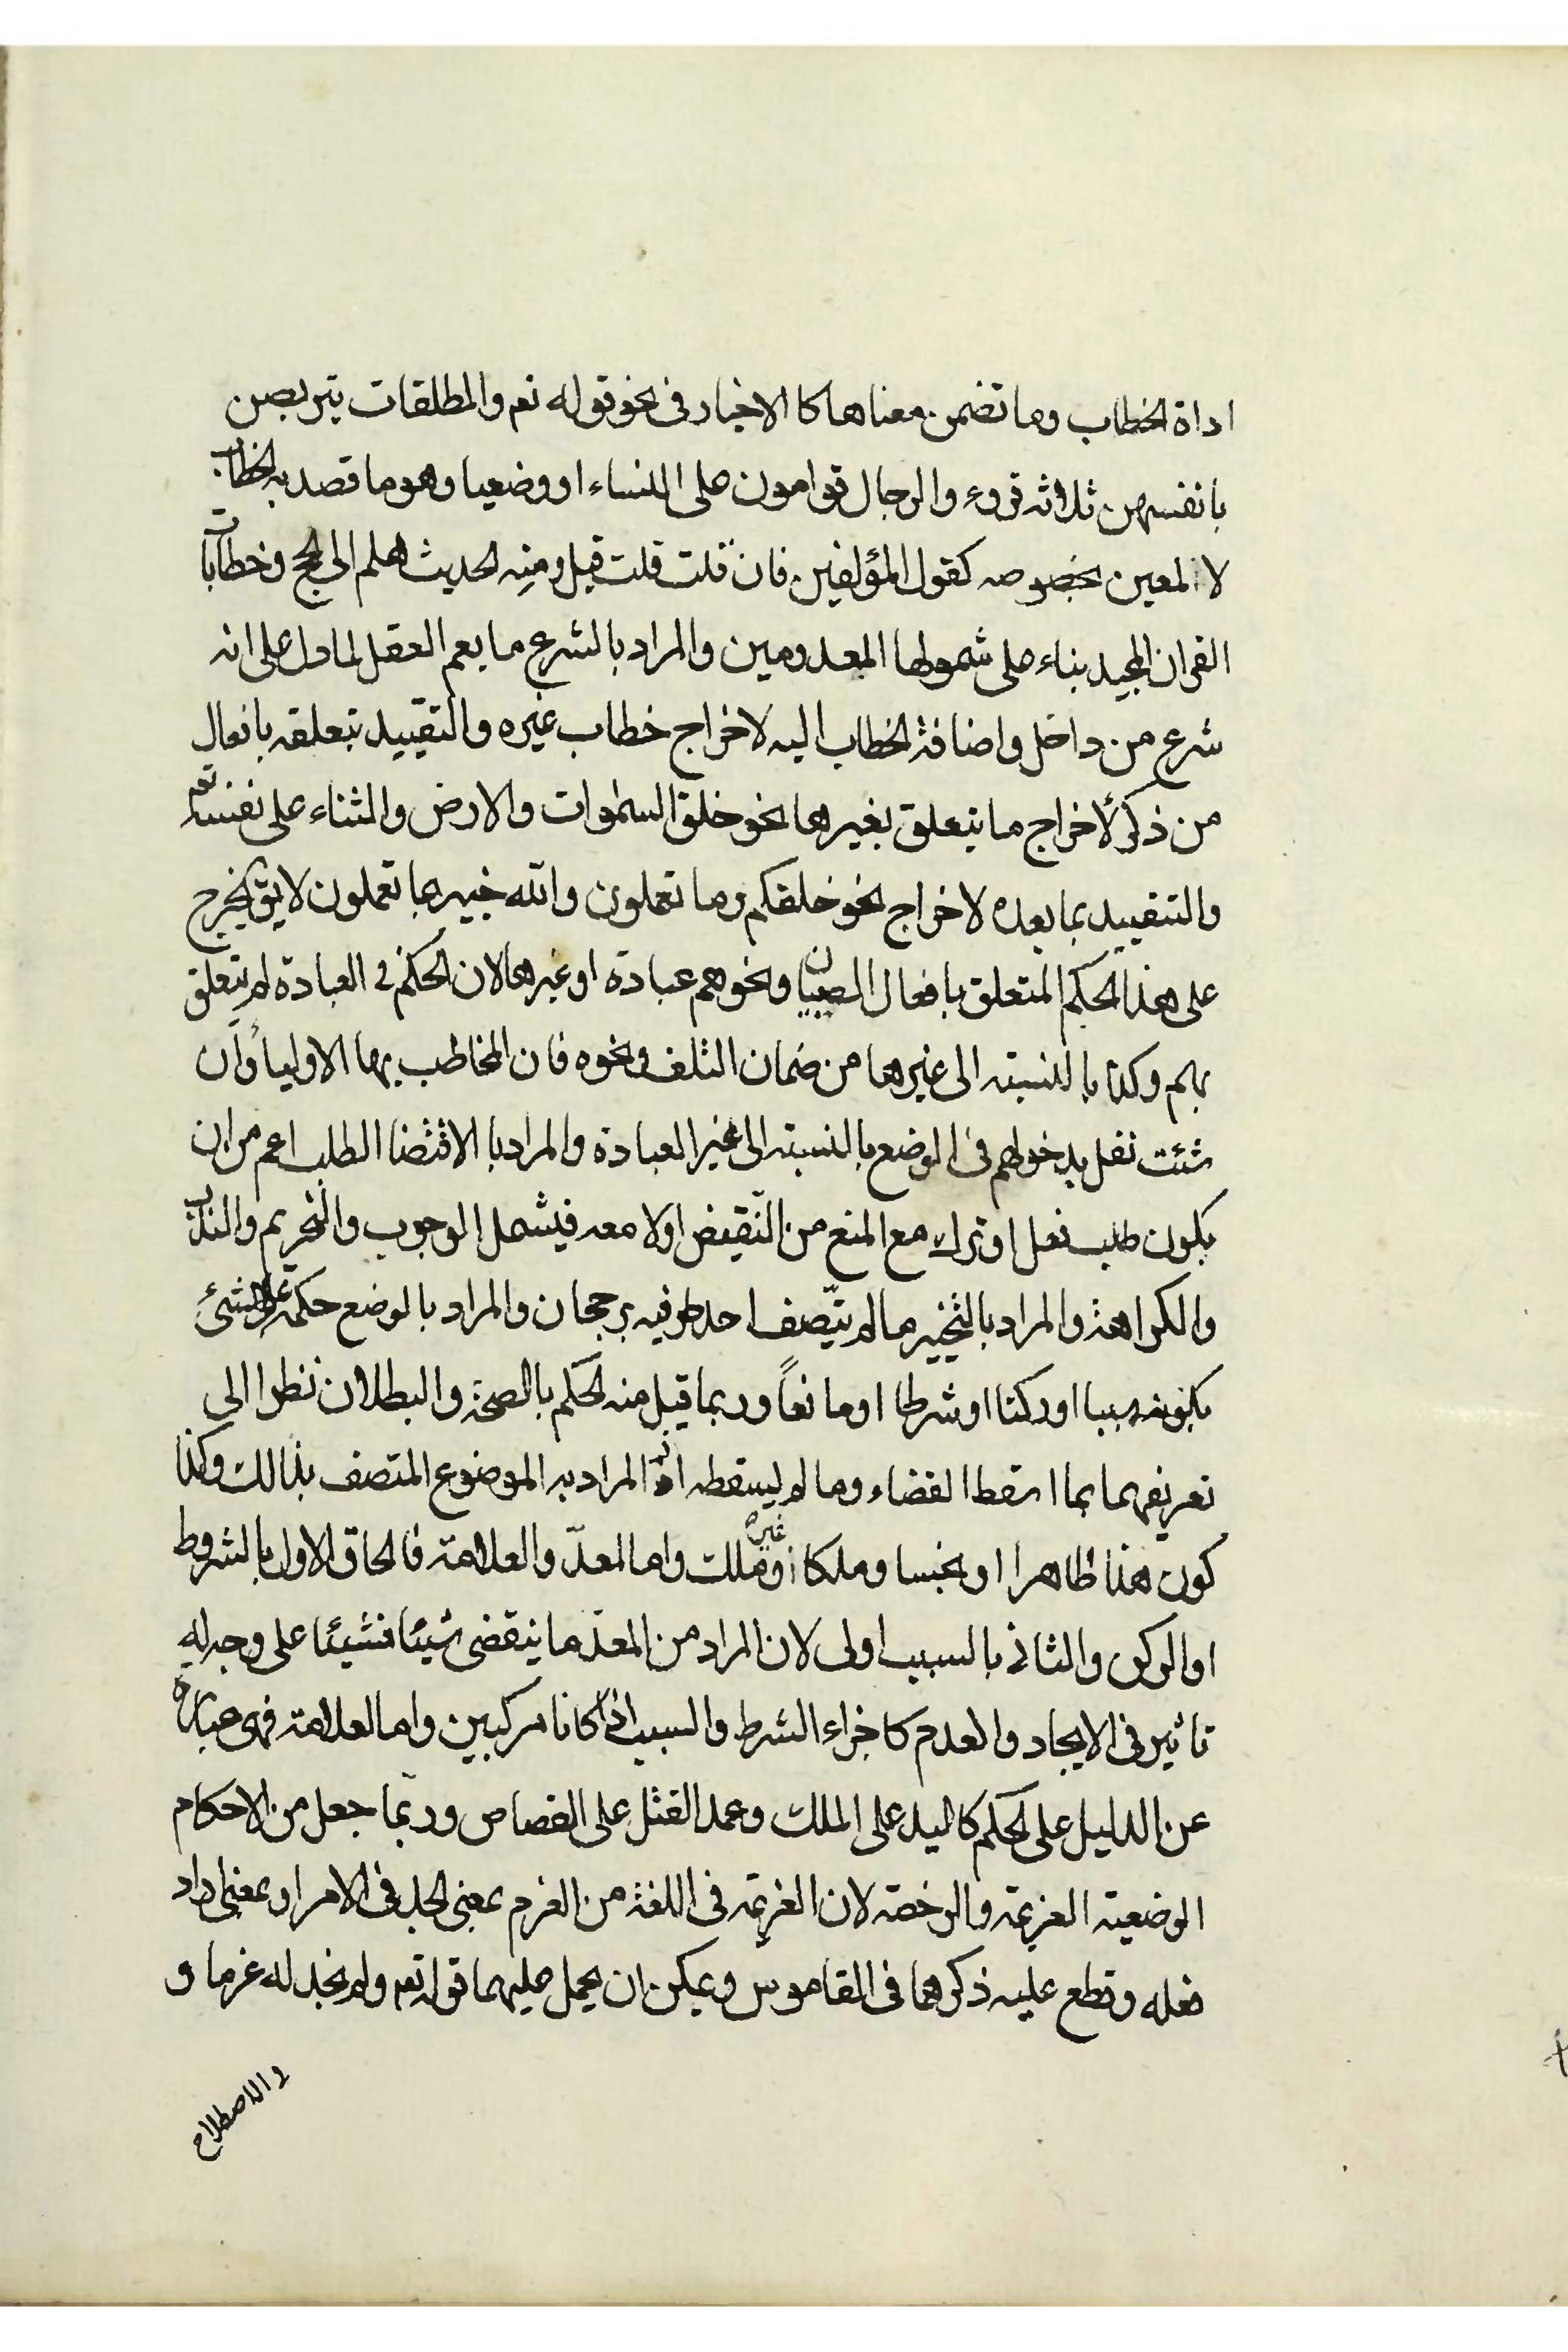 اداة الخطاب وما تضمن معناها كا الاخبار فى نحو قوله تعم والمطلقات يتربصن
بانفسهن ثلاثه قروء والرجال قوامون على النساء او وضعيا وهو ما قصد به الخطاب
لا المعين بخصوصه كقول المؤلفين فان قلت قلت قيل ومنه الحديث هلم الى الحج وخطابات
القران المجيد بناء على شمولها المعدومين والمراد بالشرع ما يعم العقل لما دل على انه
شرع من داخل واضافة الخطاب اليه لاخراج خطاب غيره والتقييد بتعلقه بافعال
من ذكر لأخراج ما يتعلق بغيرها نحو خلق السموات والارض والثناء على نفسه تعم
والتقييد بما بعده لاخراج نحو خلقكم وما تعملون والله خبير بما تعملون لا يق يخرج
على هذا الحكم المتعلق بافعال الصبيان ونحوهم عبادة او غيرها لان الحكم فى العبادة لم يتعلق
بهم وكذا بالنسبته الى غيرها من ضمان التلف ونحوه فان المخاطب بها الاولياء وان
شئت نقل بدخولهم فى الوضع بالنسبته الى غير العبادة والمراد با الاقتضا الطلب اعم من ان
يكون طلب فعل او ترك مع المنع من النقيض اولا معه فيشمل الوجوب والتحريم والندب
والكراهة والمراد بالتخيير ما لم يتصف احد طرفيه برجحان والمراد بالوضع حكمه على الشئ
بكونه سببا او ركنا او شرطا او مانعاً وربما قيل منه الحكم بالصحة والبطلان نظرا الى
تعريفهما بما اسقط القضاء وما لم يسقطه اذ المراد به الموضوع المتصف بذالك وكذا
كون هذا طاهرا او نجسا وملكا او غير ملك واما المعدّ والعلامة فالحاق الاول بالشروط
او الركن والثانى بالسبب اولى لان المراد من المعدّ ما ينقضى شيئا فشيئا على وجه له
تاثير فى الايجاد والعدم كاجزاء الشرط والسبب اذا كانا مركبين واما العلامة فهى عبارة
عن الدليل على الحكم كاليد على الملك وعمد القتل على القصاص وربّما جعل من الاحكام
الوضعية العزيمة والرخصة لان العزيمة فى اللغة من العزم بمعنى الجد فى الامر او بمعنى اراد
فعله وقطع عليه ذكرهما فى القاموس ويمكن ان يحمل عليهما قوله تعم ولم نجد له عزما و
والاصطلاح